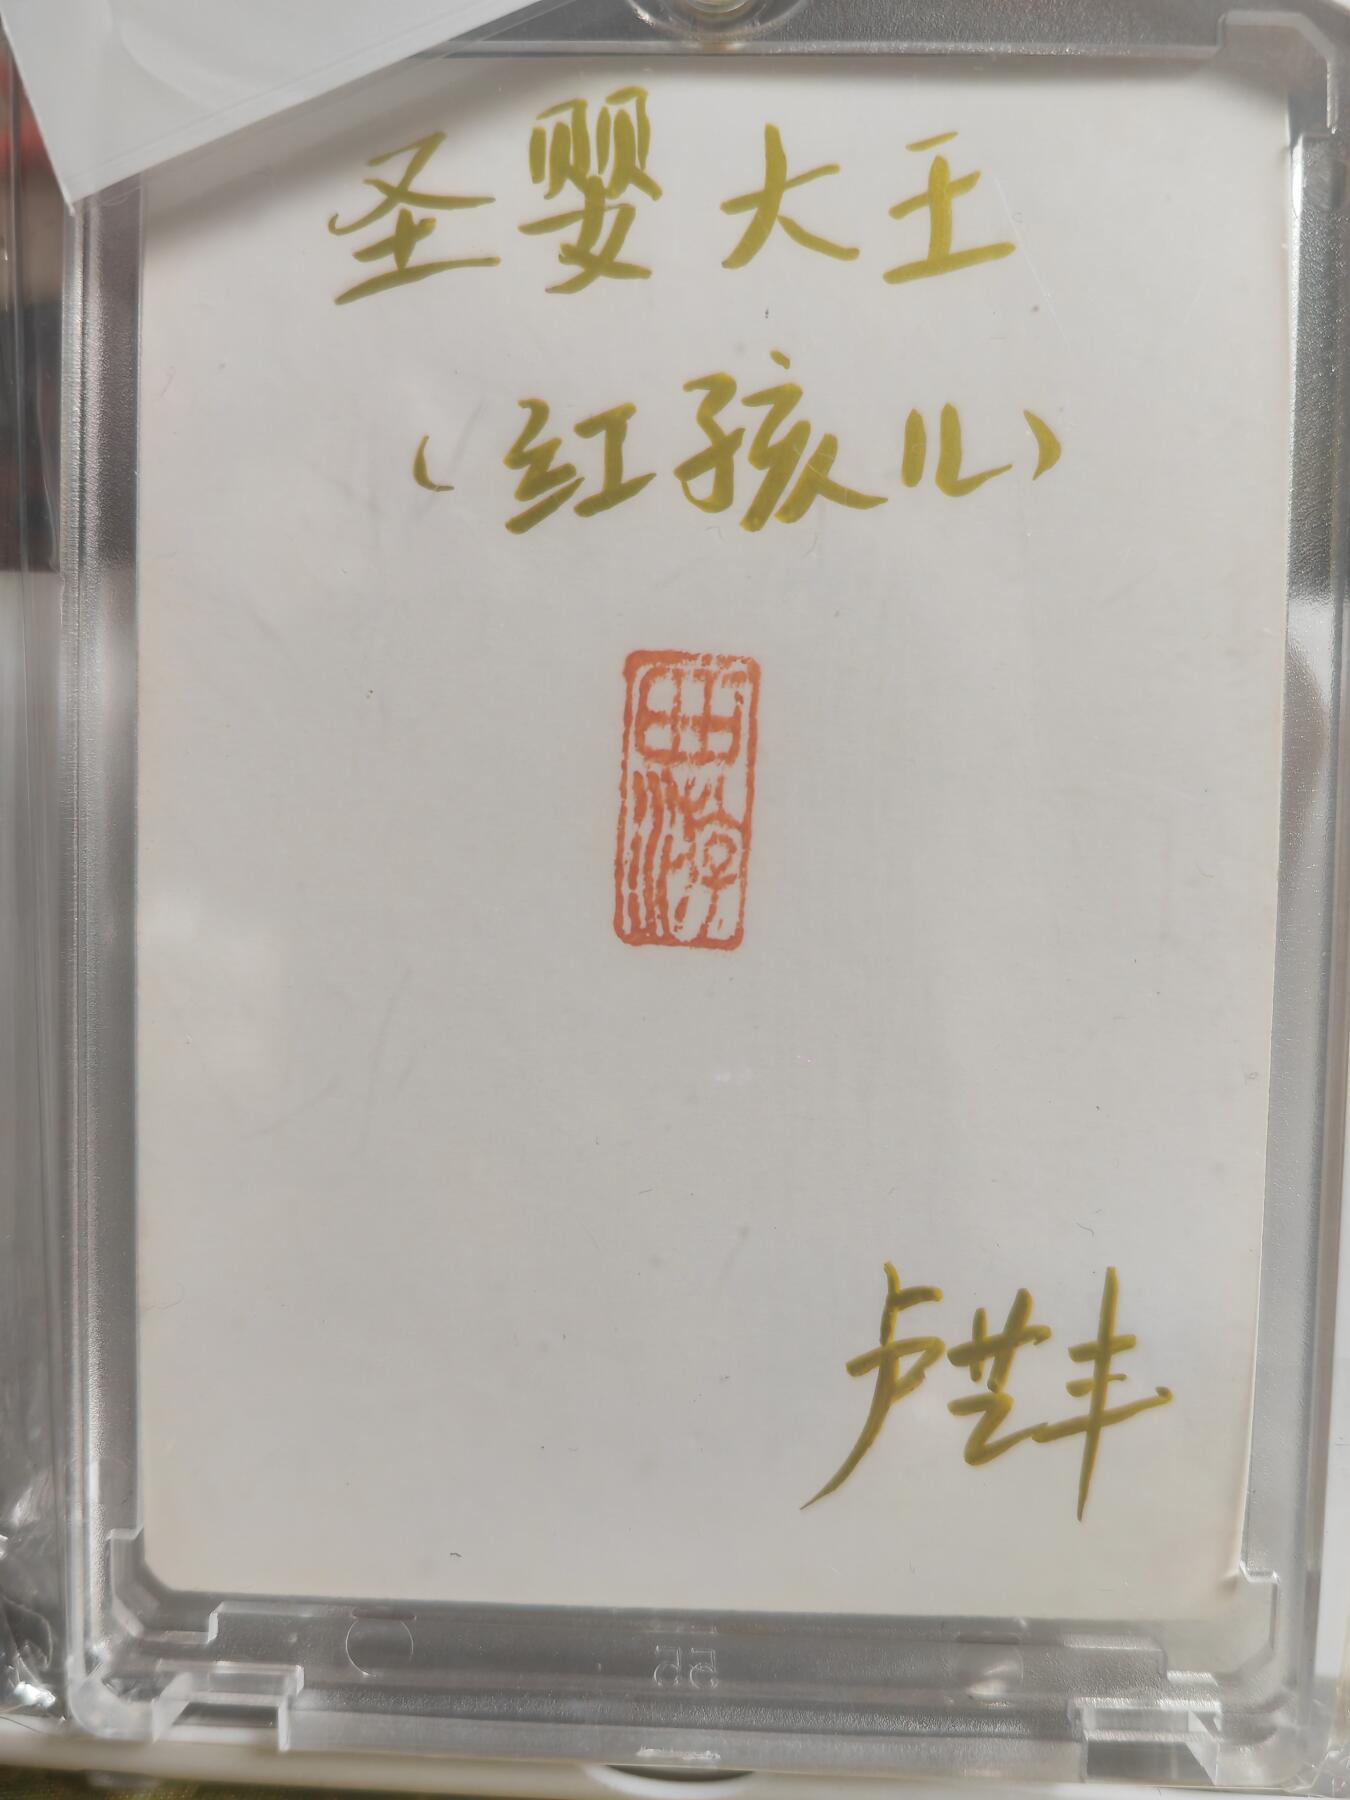 圣婴大王
（红孩儿）
卢世丰
55